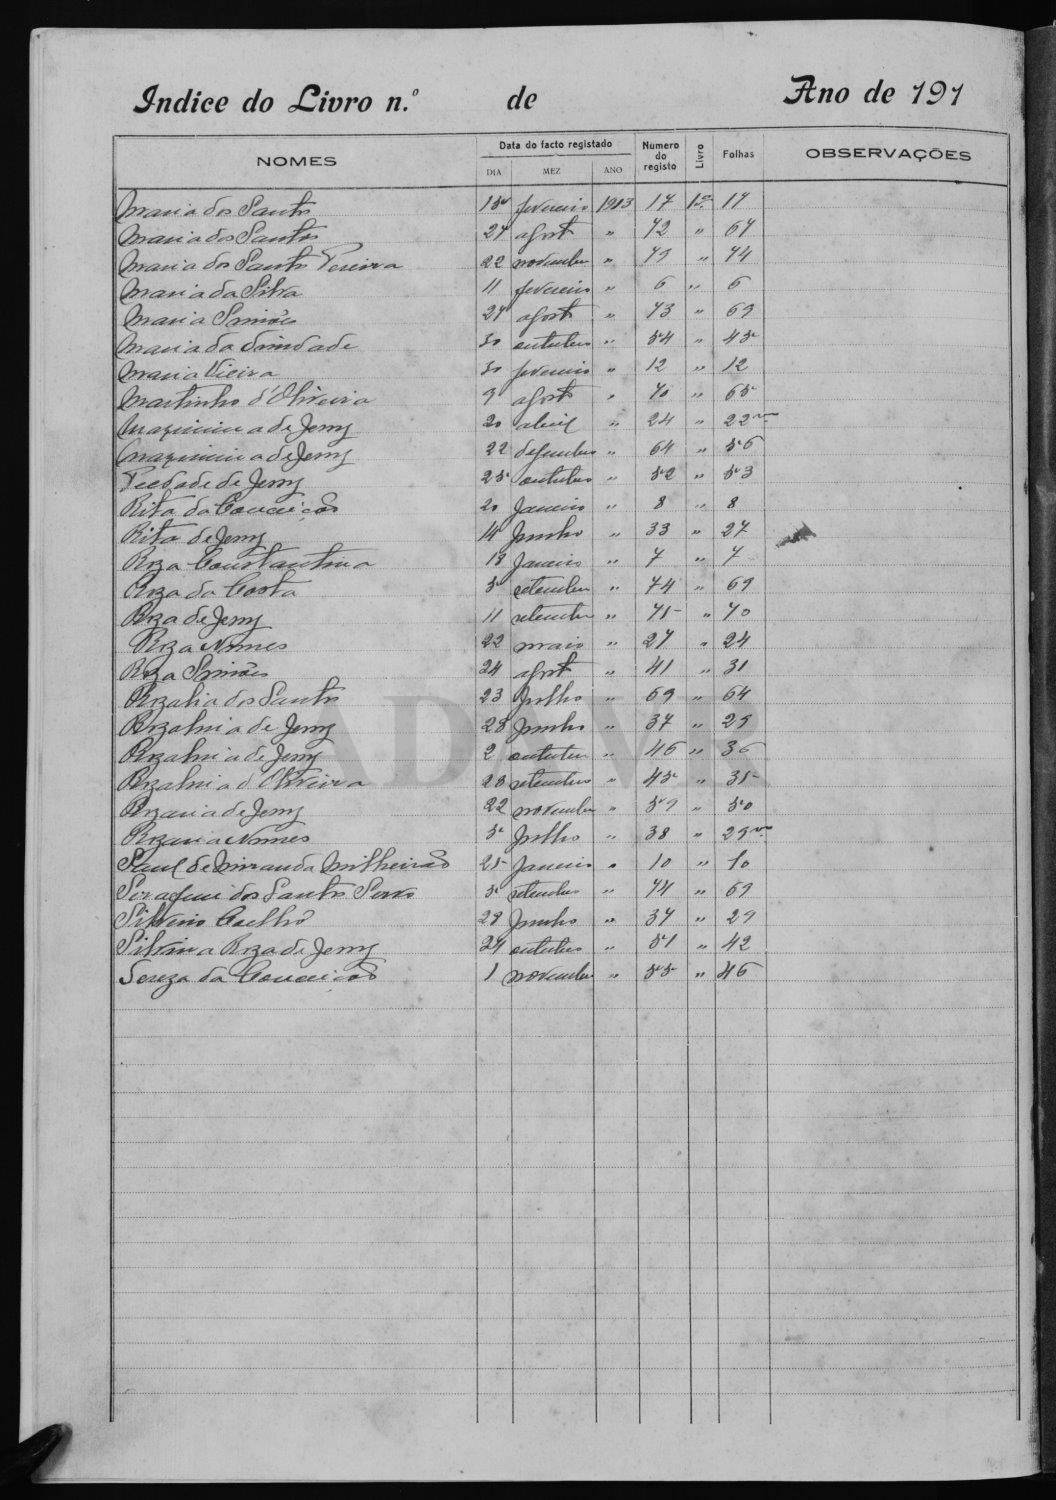 Indice do Livro n.º de Ano de 191
NOMES Data do facto registado Numero do registo Livro Folhas OBSERVAÇÕES
DIA MEZ ANO
Maria dos Santos 15 fevereiro 1913 17 1º 17
Maria dos Santos 27 agosto " 72 " 67
Maria dos Santos Pereira 22 novembro " 79 " 74
Maria da Silva 11 fevereiro " 6 " 6
Maria Simões 27 agosto " 73 " 69
Maria da Trindade 30 outubro " 54 " 45
Maria Vieira fevereiro " 12 " 12
Martinho d'Oliveira 9 agosto " 70 " 65
Maximina de Jesus 20 abril " 24 " 22
Maximina de Jesus 22 dezembro " 64 " 56
Piedade de Jesus 25 outubro " 52 " 53
Rita da Conceição 20 Janeiro " 8 " 8
Rita de Jesus 14 Junho " 33 " 27
Roza Constantina 18 Janeiro " 7 " 7
Roza da Costa 5 setembro " 74 " 69
Roza de Jesus 11 setembro " 75 " 70
Roza Nunes 22 maio " 27 " 24
Roza Simões 24 agosto " 41 " 31
Rozalia dos Santos 23 Julho " 69 " 64
Rozalina de Jesus 28 Junho " 37 " 29
Rozalina de Jesus 2 outubro " 46 " 36
Rozalina d'Oliveira 28 setembro " 45 " 35
Rozaria de Jesus 22 novembro " 59 " 50
Rozaria Nunes 5 Julho " 38 " 29
Saul de Miranda Milheirão 25 Janeiro " 10 " 10
Serafim dos Santos 5 setembro " 74 " 69
Silverio Coelho 28 Junho " 37 " 29
Silvina Roza de Jesus 24 outubro " 51 " 42
Tereza da Conceição 1 novembro " 55 " 46
ADAVR